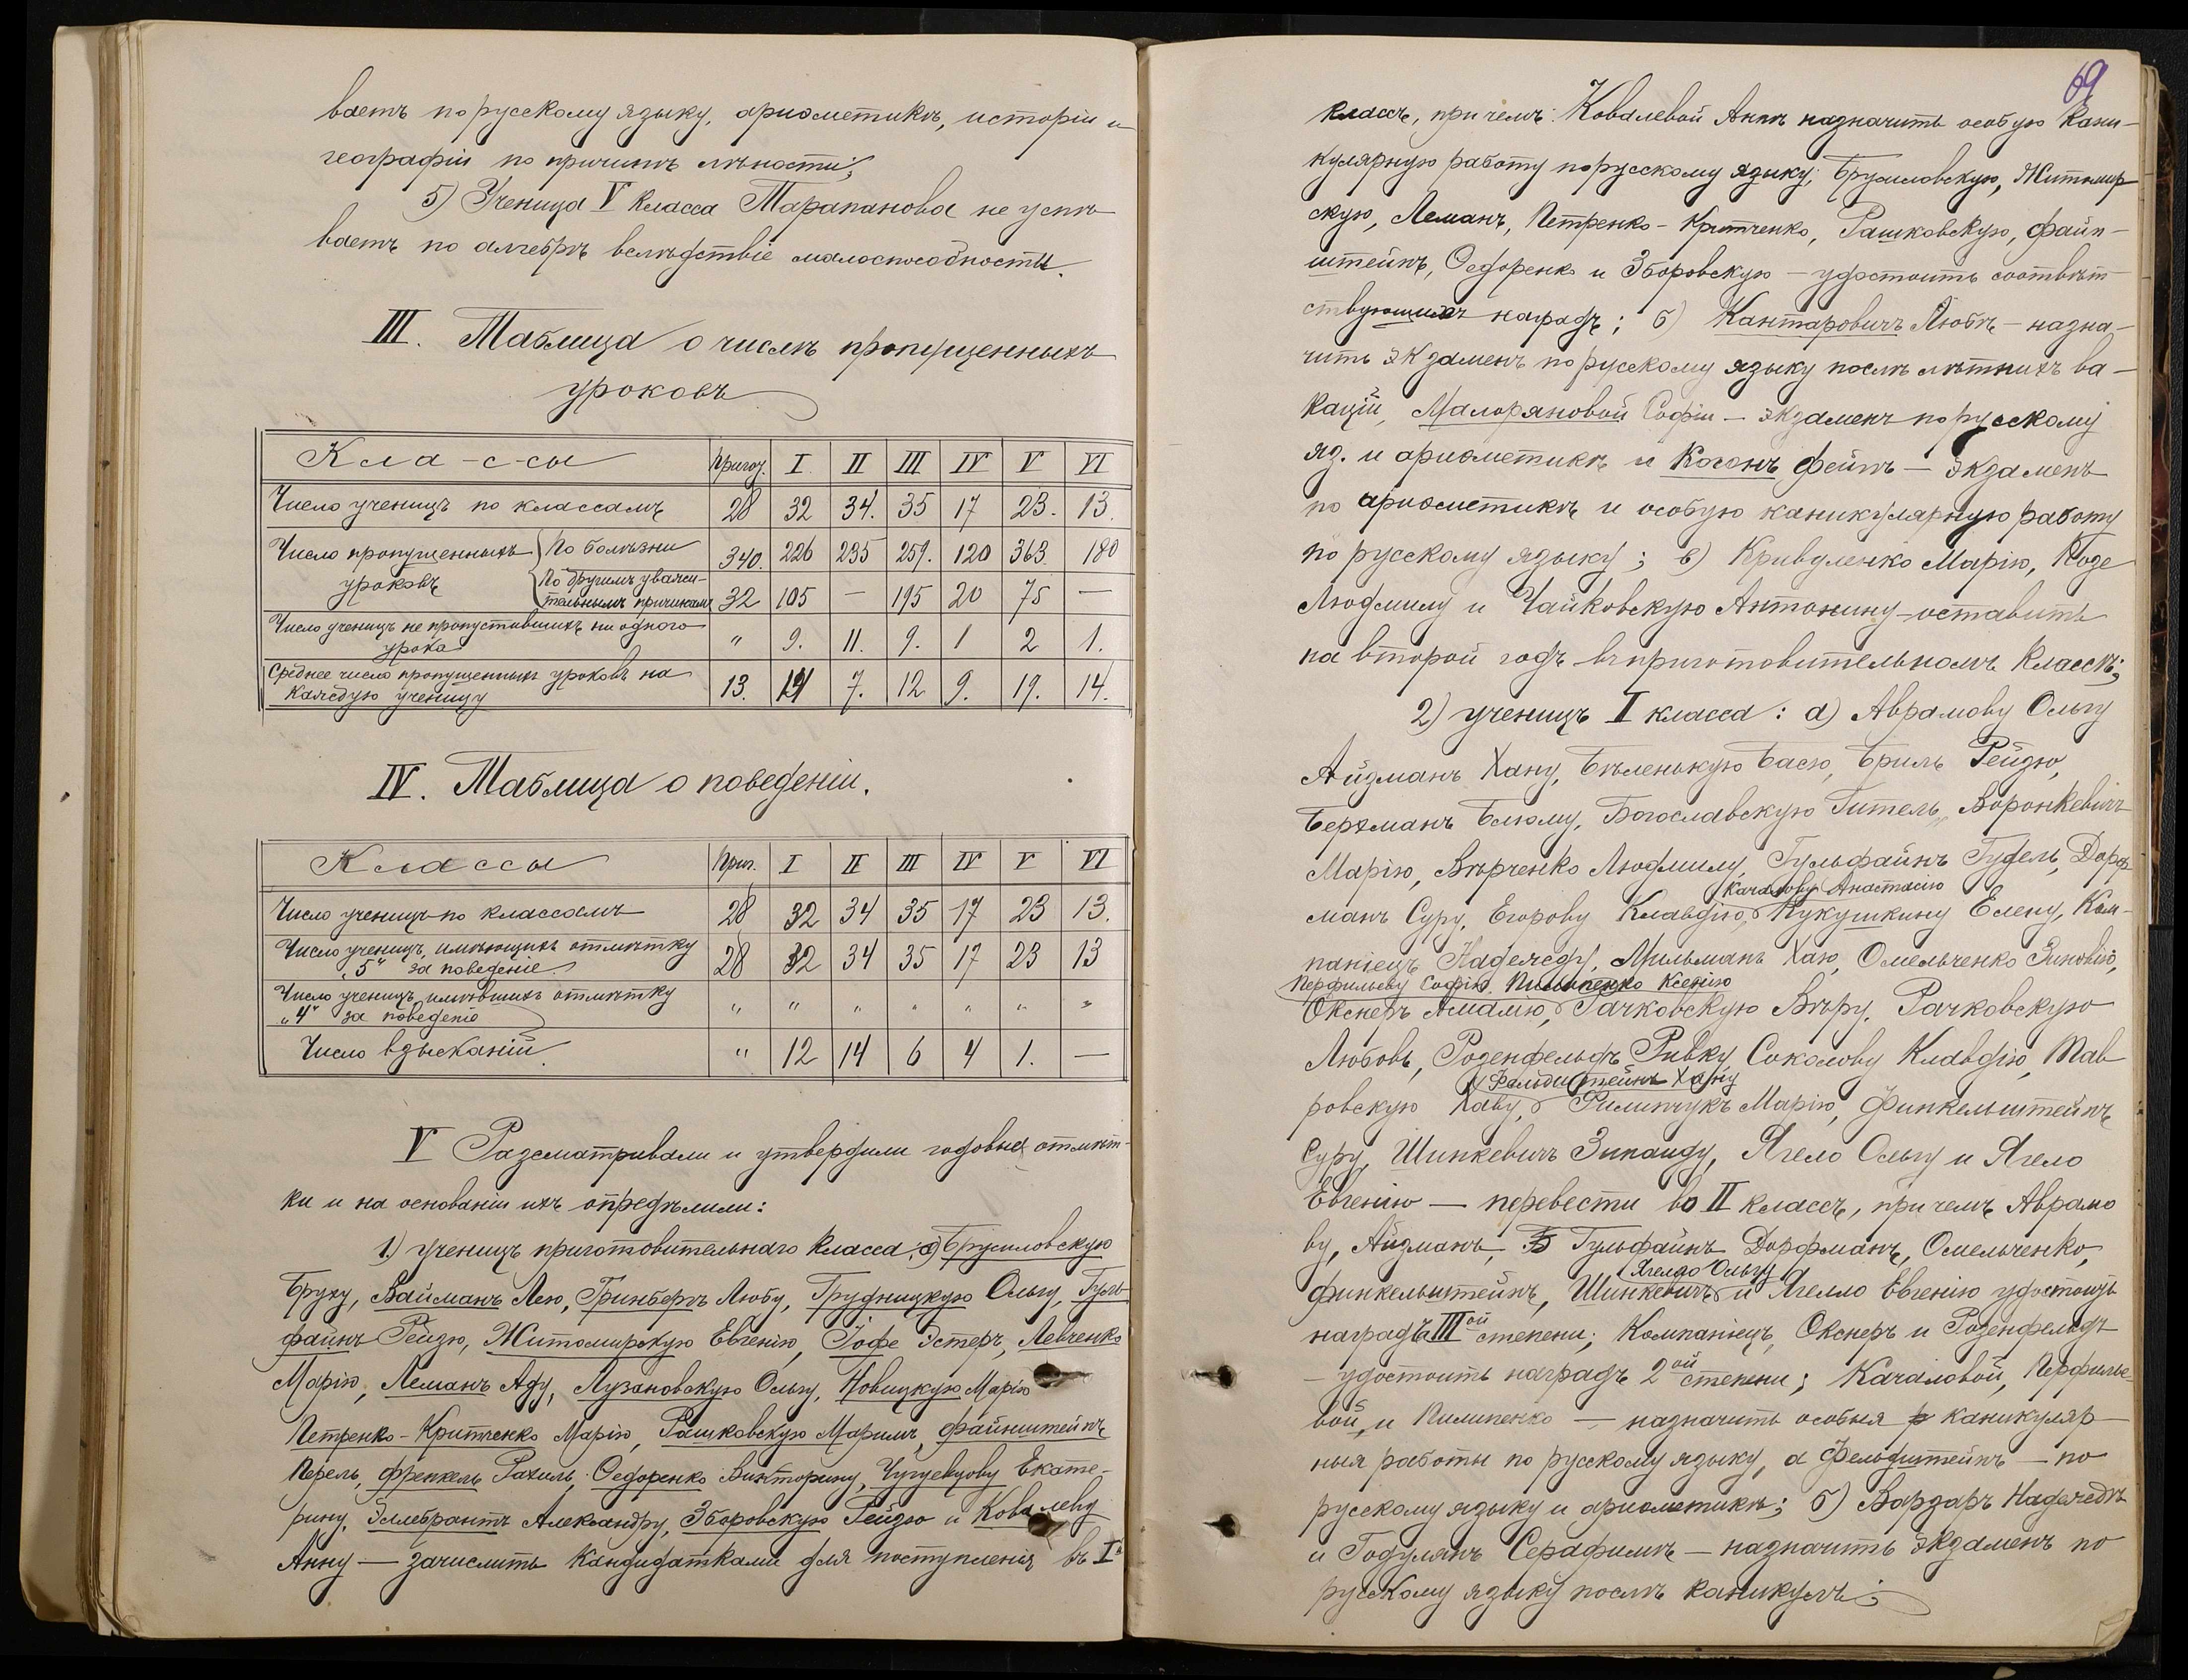 ваетъ по русскому языку, ариѳметикѣ, исторіи и
географіи по причинѣ лѣности;
5) Ученица V класса Тарапанова не успѣ-
ваетъ по алгебрѣ вслѣдствіе малоспособности.
III. Таблица о числѣ пропущенныхъ
уроковъ
Кла-с-сы Пригот. I II III IV V VI
Число ученицъ по классамъ 28 32 34. 35 17 23. 13.
Число пропущенныхъ уроковъ По болѣзни 340. 226 235 259. 120 363 180
По другимъ уважи-
тельнымъ причинамъ 32 105 — 195 20 75 —
Число ученицъ не пропустившихъ ни одного
урока " 9. 11. 9. 1 2 1.
Среднее число пропущенныхъ уроковъ на
каждую ученицу 13. 7. 12 9. 19. 14.
IV. Таблица о поведеніи.
Классы Приг. I II III IV V VI
Число ученицъ по классамъ 28 32 34 35 17 23 13.
Число ученицъ, имѣющихъ отмѣтку
„5“ за поведеніе 28 32 34 35 17 23 13
Число ученицъ имѣвшихъ отмѣтку
„4“ за поведеніе " " " " " " "
Число взысканій " 12 14 6 4 1. —
V Разсматривали и утвердили годовые отмѣт-
ки и на основаніи ихъ опредѣлили:
1) ученицъ приготовительнаго класса: а) Брусиловскую
Бруху, Вайманъ Лею, Гринбергъ Любу, Грудницкую Ольгу, Гуль-
файнъ Рейзю, Житомирскую Евгенію, Іофе Эстеръ, Левченко
Марію, Леманъ Аду, Лузановскую Ольгу, Новицкую Марію
Петренко-Критченко Марію, Рашковскую Маримъ, Файнштейнъ
Перель, Френкель Рахиль, Ѳедоренко Викторину, Чугуевцову Екате-
рину, Эллебрантъ Александру, Зборовскую Рейзю и Ковалеву
Анну — зачислить кандидатками для поступленія въ I й
69
классъ, при чемъ: Ковалевой Аннѣ назначить особую кани-
кулярную работу по русскому языку; Брусиловскую, Житомир
скую, Леманъ, Петренко-Критченко, Рашковскую, Файн-
штейнъ, Ѳедоренко и Зборовскую — удостоить соотвѣт
ствующихъ наградъ; б) Кантаровичъ Любѣ — назна-
чить экзаменъ по русскому языку послѣ лѣтнихъ ва-
кацій, Малоряновой Софіи — экзаменъ по русскому
яз. и ариѳметикѣ и Коганъ Фейгѣ — экзаменъ
по ариѳметикѣ и особую каникулярную работу
по русскому языку; в) Кривуленко Марію, Коде
Людмилу и Чайковскую Антонину — оставить
на второй годъ въ приготовительномъ классѣ;
2) ученицъ I класса: а) Аврамову Ольгу
Айзманъ Хану, Бѣленькую Басю, Бриль Рейзю,
Бергманъ Блюму, Богославскую Гитель, Воронкевичъ
Марію, Вѣрченко Людмилу, Гульфайнъ Гудель, Дорф-
Качалову Анастасію
манъ Суру, Егорову Клавдію, Кукушкину Елену, Ком-
паніецъ Надежду, Мильманъ Хаю, Омельченко Зиновію,
Перфильеву Софію, Пилипенко Ксенію
Окснеръ Амалію, Рачковскую Вѣру, Рачковскую
Любовь, Розенфельдъ Ривку, Соколову Клавдію, Тав-
Фельдштейнъ Хану
ровскую Хаву, Филипчукъ Марію, Финкельштейнъ
Суру, Шинкевичъ Зинаиду, Ягело Ольгу и Ягело
Евгенію — перевести во II классъ, при чемъ Аврамо
ву, Айзманъ, Гульфайнъ Дорфманъ, Омельченко,
Ягелло Ольгу
Финкельштейнъ, Шинкевичъ и Ягелло Евгенію удостоить
наградъ III ой степени; Компаніецъ, Окснеръ и Розенфельдъ
— удостоить наградъ 2 ой степени; Качаловой, Перфилье-
вой, и Пилипенко — назначить особыя каникуляр-
ныя работы по русскому языку, а Фельдштейнъ — по
русскому языку и ариѳметикѣ; б) Вардаръ Надеждѣ
и Годулянъ Серафимѣ — назначить экзаменъ по
русскому языку послѣ каникулъ;